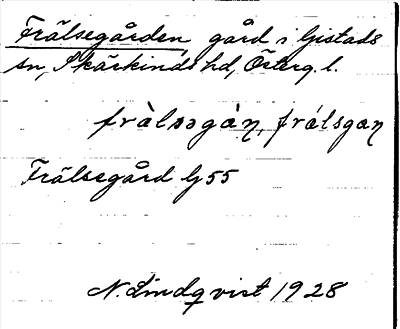 Frälsegården gård i Gistads
sn, Skärkinds hd, Österg. l.
fràlsəgàn̥, frálsgan
Frälsegård G 55
N. Lindqvist 1928